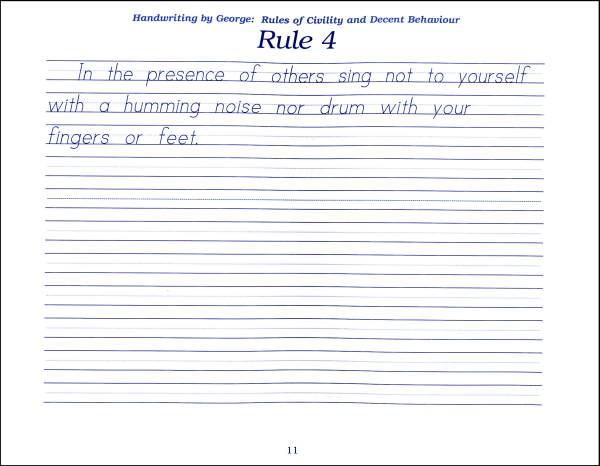 Handwriting by George: Rules of Civility and Decent Behaviour
Rule 4
In the presence of others sing not to yourself
with a humming noise nor drum with your
fingers or feet.
11